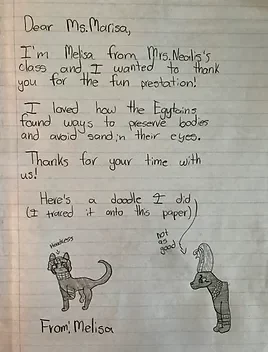 Dear Ms. Marisa,
I'm Melisa from Mrs. Nealis's
class and I wanted to thank
you for the fun prestation!
I loved how the Egytoins
found ways to preserve bodies
and avoid sand in their eyes.
Thanks for your time with
us!
Here's a doodle I did
(I traced it onto this paper)
not
as
good
From, Melisa